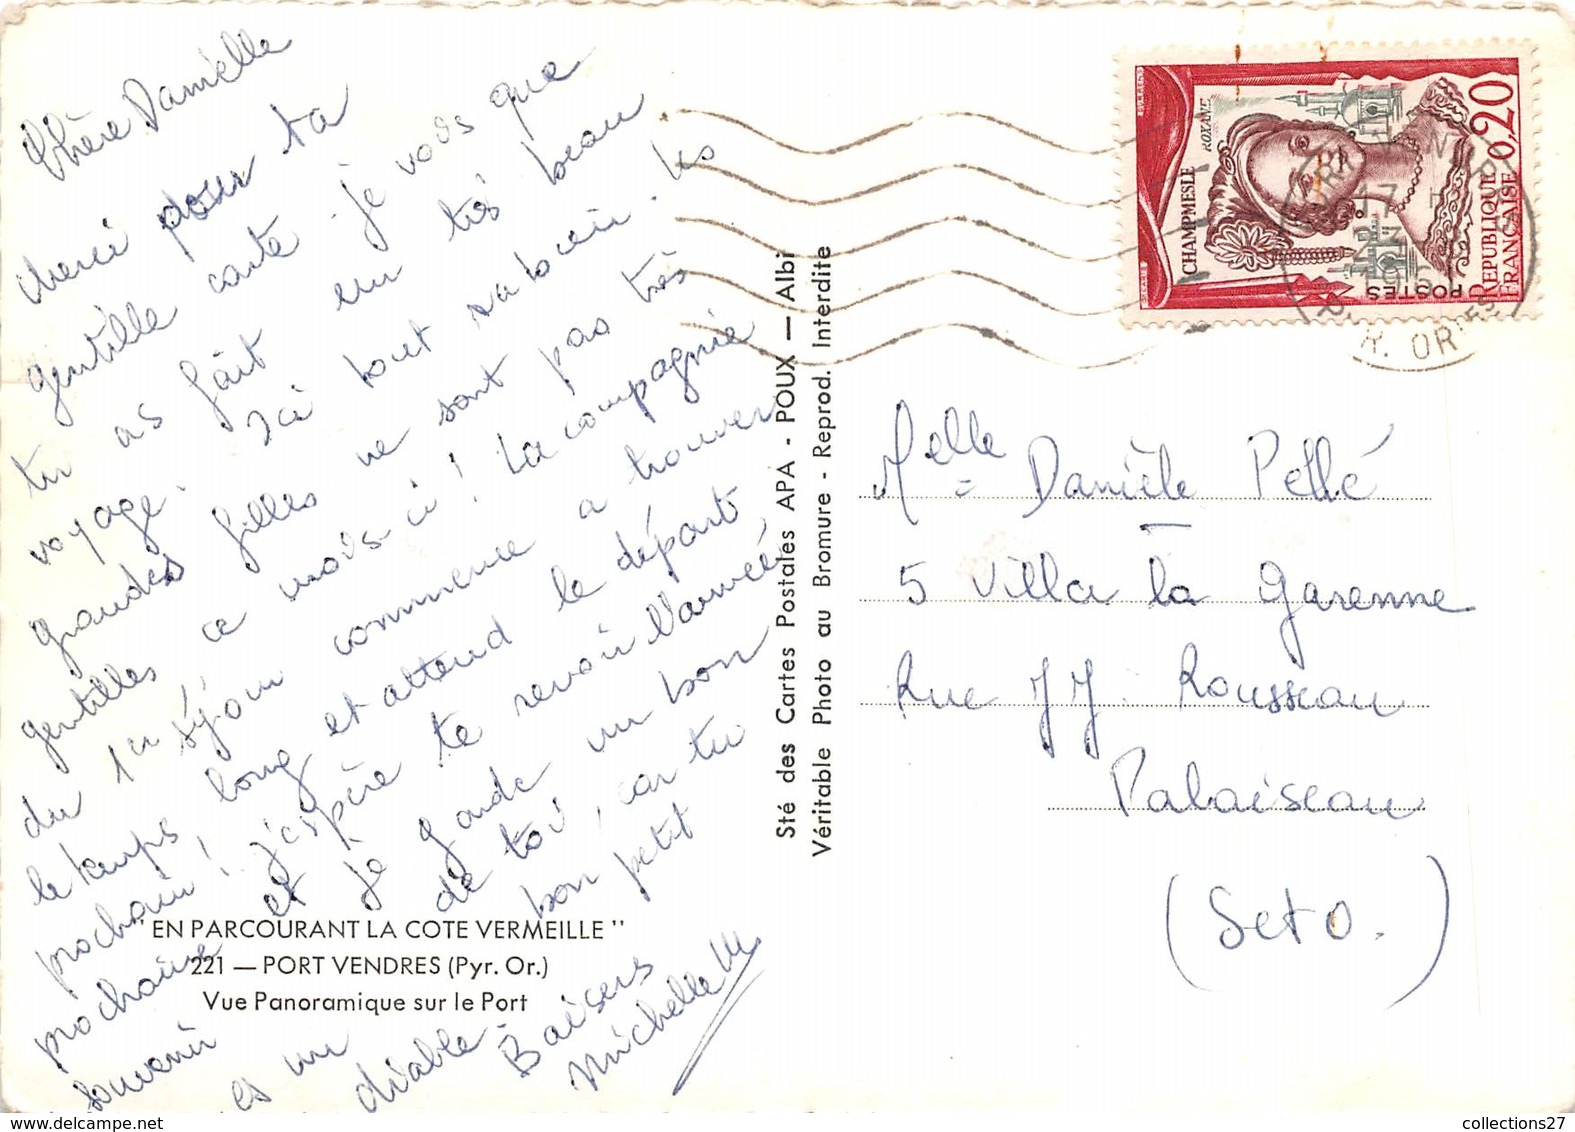 Chère Danielle
merci pour ta
gentille carte. je vois que
tu as fait un très beau
voyage. Ici tout va bien. Les
grandes filles ne sont pas très
gentilles ce mois-ci ! La compagnie
du 1er séjour commence à trouver
le temps long et attend le départ
prochain ! j'espère te revoir l'année
prochaine et je garde un bon
souvenir de toi, car tu
es un bon petit
diable.
Baisers
Michelle M
"EN PARCOURANT LA COTE VERMEILLE"
221 — PORT VENDRES (Pyr. Or.)
Vue Panoramique sur le Port
Sté des Cartes Postales APA - POUX — Albi
Véritable Photo au Bromure - Reprod. Interdite
CHAMPMESLÉ
ROXANE
0,20
REPUBLIQUE
FRANÇAISE
POSTES
17 H
PYR. ORIES
Melle Danièle Pellé
5 Villa la Garenne
Rue JJ. Rousseau
Palaiseau
(Set O.)
collections27